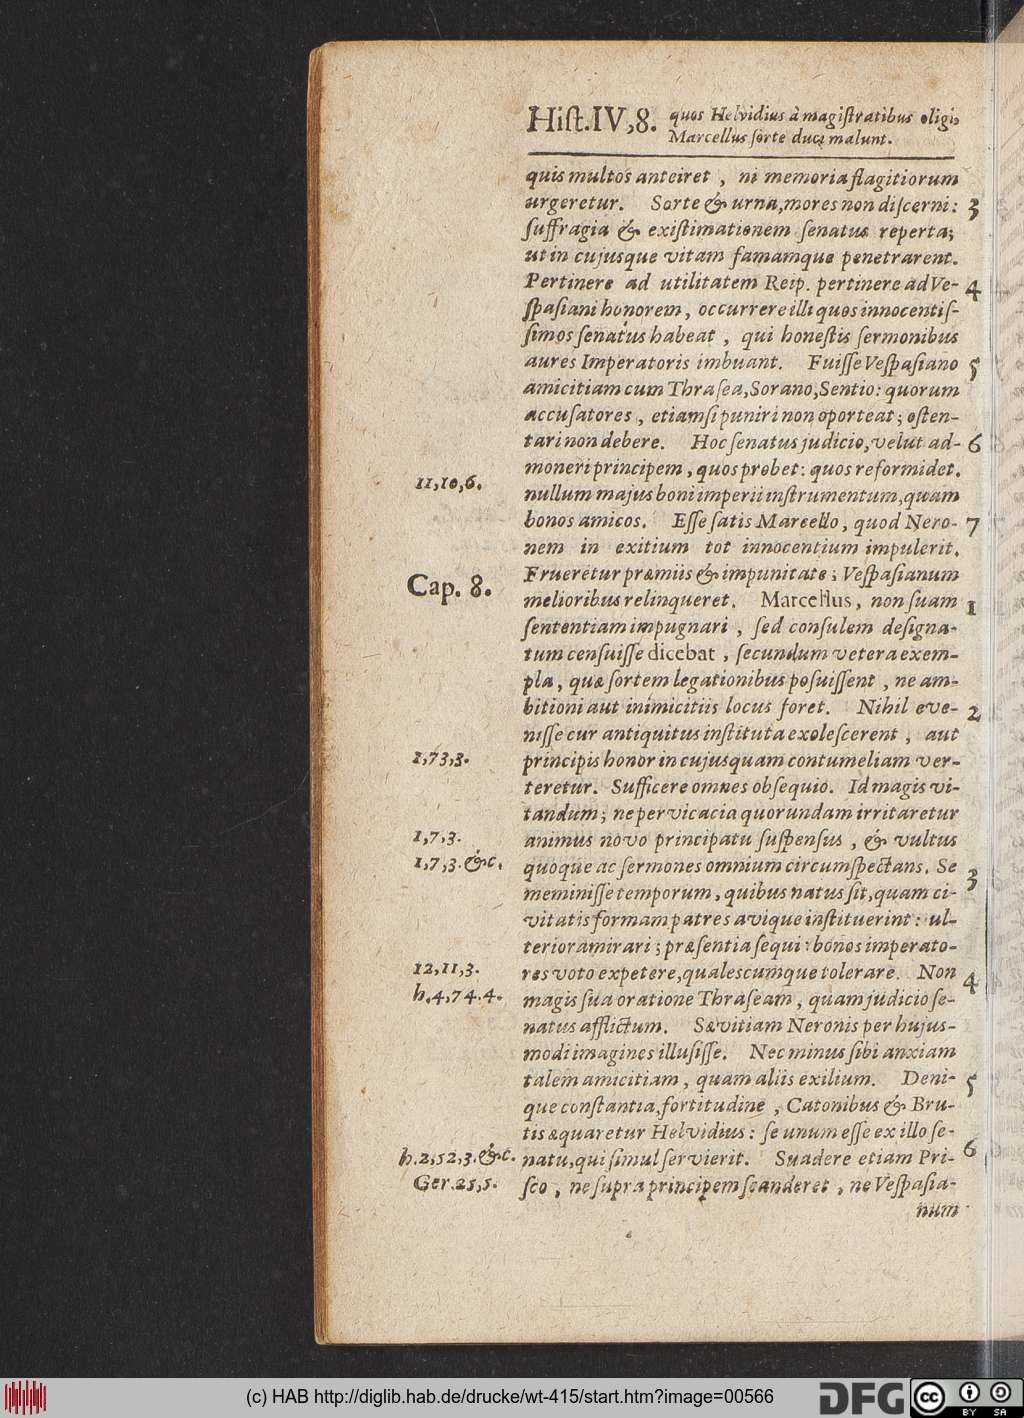 Hiſt.IV,8. quos Helvidius à magiſtratibus eligi,
Marcellus ſorte duci malunt.
quis multos anteiret , ni memoria flagitiorum
urgeretur. Sorte & urna,mores non diſcerni: 3
ſuffragia & exiſtimationem ſenatus reperta;
ut in cujusque vitam famamque penetrarent.
Pertinere ad utilitatem Reip. pertinere ad Ve- 4
ſpaſiani honorem, occurrere illi quos innocentiſ-
ſimos ſenatus habeat , qui honeſtis ſermonibus
aures Imperatoris imbuant. Fuiſſe Veſpaſiano 5
amicitiam cum Thraſea,Sorano,Sentio: quorum
accuſatores , etiamſi puniri non oporteat ; oſten-
tari non debere. Hoc ſenatus judicio,velut ad- 6
moneri principem, quos probet: quos reformidet.
11,10,6. nullum majus boni imperii inſtrumentum,quam
bonos amicos. Eſſe ſatis Marcello, quod Nero- 7
nem in exitium tot innocentium impulerit.
Frueretur præmiis & impunitate; Veſpaſianum
Cap. 8. melioribus relinqueret. Marcellus, non ſuam 1
ſententiam impugnari , ſed conſulem deſigna-
tum cenſuiſſe dicebat , ſecundum vetera exem-
pla, quæ ſortem legationibus poſuiſſent , ne am-
bitioni aut inimicitiis locus foret. Nihil eve- 2
niſſe cur antiquitus inſtituta exoleſcerent , aut
1,73,3. principis honor in cujusquam contumeliam ver-
teretur. Sufficere omnes obſequio. Id magis vi-
tandum; ne pervicacia quorundam irritaretur
1,7,3. animus novo principatu ſuſpenſus , & vultus
1,7,3.&c. quoque ac ſermones omnium circumſpectans. Se 3
meminiſſe temporum, quibus natus ſit,quam ci-
vitatis formam patres avique inſtituerint: ul-
teriora mirari; præſentia ſequi: bonos imperato-
12,11,3. res voto expetere,qualescumque tolerare. Non 4
h.4,74.4. magis ſua oratione Thraſeam , quam judicio ſe-
natus afflictum. Sævitiam Neronis per hujus-
modi imagines illuſiſſe. Nec minus ſibi anxiam
talem amicitiam , quam aliis exilium. Deni- 5
que conſtantia,fortitudine , Catonibus & Bru-
tis æquaretur Helvidius: ſe unum eſſe ex illo ſe-
h.2,52,3.&c. natu,qui ſimul ſervierit. Suadere etiam Pri- 6
Ger.25,5. ſco , ne ſupra principem ſcanderet , ne Veſpaſia-
num
(c) HAB http://diglib.hab.de/drucke/wt-415/start.htm?image=00566
DFG
cc BY SA